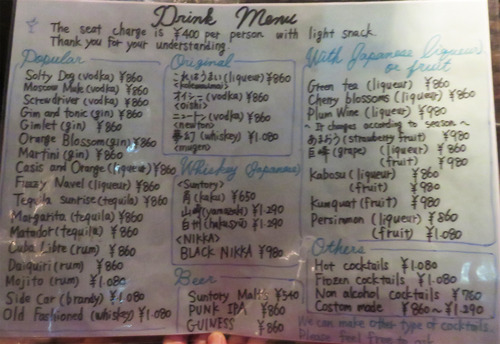 Drink Menu
The seat charge is ¥400 per person with light snack.
Thank you for your understanding.
Popular
Solty Dog (vodka) ¥860
Moscow Mule (vodka) ¥860
Screwdriver (vodka) ¥860
Gin and tonic (gin) ¥860
Gimlet (gin) ¥860
Orange Blossom (gin) ¥860
Martini (gin) ¥860
Casis and Orange (liqueur) ¥860
Fuzzy Navel (liqueur) ¥860
Tequila sunrise (tequila) ¥860
Margarita (tequila) ¥860
Matador (tequila) ¥860
Cuba Libre (rum) ¥860
Daiquiri (rum) ¥860
Mojito (rum) ¥1.080
Side Car (brandy) ¥1.080
Old Fashioned (whiskey) ¥1.080
Original
これはうまい (liqueur) ¥860
オイシー (vodka) ¥860
<oishi>
ニュートン (vodka) ¥860
<newton>
夢幻 (whiskey) ¥1.080
<mugen>
Whiskey (Japanese)
<Suntory>
角 (kaku) ¥650
山崎 (yamazaki) ¥1.290
白州 (hakushu) ¥1.290
<NIKKA>
BLACK NIKKA ¥980
Beer
Suntory Malts ¥540
PUNK IPA ¥860
GUINESS ¥860
With Japanese liqueur
or fruit
Green tea (liqueur) ¥860
Cherry blossoms (liqueur) ¥860
Plum Wine (liqueur) ¥980
~ It changes according to season ~
あまおう (strawberry fruit) ¥980
巨峰 (grape) (liqueur) ¥860
(fruit) ¥980
Kabosu (liqueur) ¥860
(fruit) ¥980
Kumquat (fruit) ¥980
Persimmon (liqueur) ¥860
(fruit) ¥1.080
Others
Hot cocktails ¥1.080
Frozen cocktails ¥1.080
Non alcohol cocktails ¥760
Costom made ¥860~¥1.290
We can make other type of cocktails.
Please feel free to ask